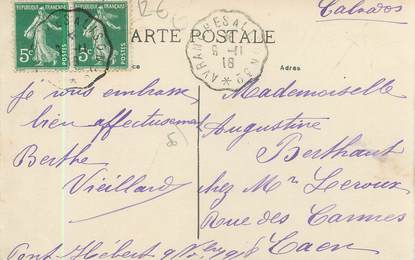 126
Calvados
RÉPUBLIQUE FRANÇAISE
RÉPUBLIQUE FRANÇAISE
5c
5c
CARTE POSTALE
9-11
18
Adres
Je vous embrasse
bien affectueusement
Berthe
Vieillard
Mademoiselle
Augustine
Berthaut
chez Mr Leroux
Rue des Carmes
Caen
Pont-Hébert 9 Nbre 1918